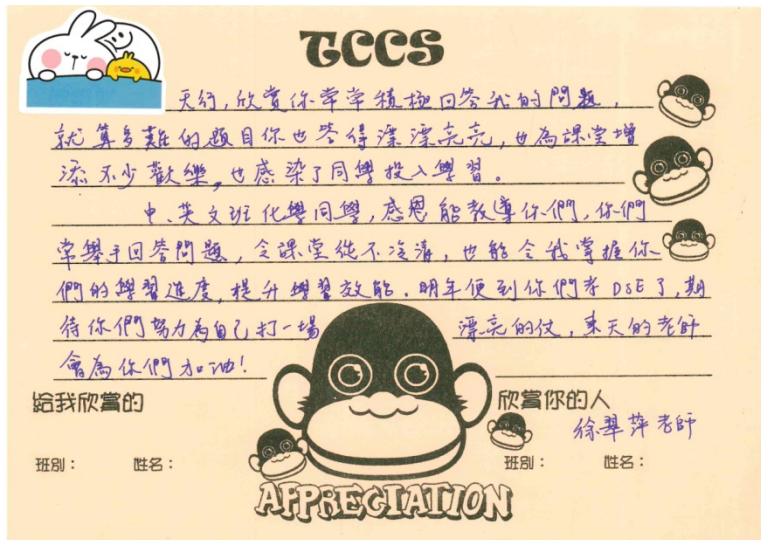 TCCS
天行，欣賞你常常積極回答我的問題，
就算多難的題目你也答得漂漂亮亮，也為課堂增
添不少歡樂，也感染了同學投入學習。
中、英文班化學同學，感恩能教導你們，你們
常舉手回答問題，令課堂從不冷清，也能令我掌握你
們的學習進度，提升學習效能。明年便到你們考DSE了，期
待你們努力為自己打一場漂亮的仗，東天的老師
會為你們加油！
給我欣賞的
欣賞你的人
徐翠萍老師
班別： 姓名：
班別： 姓名：
APPRECIATION